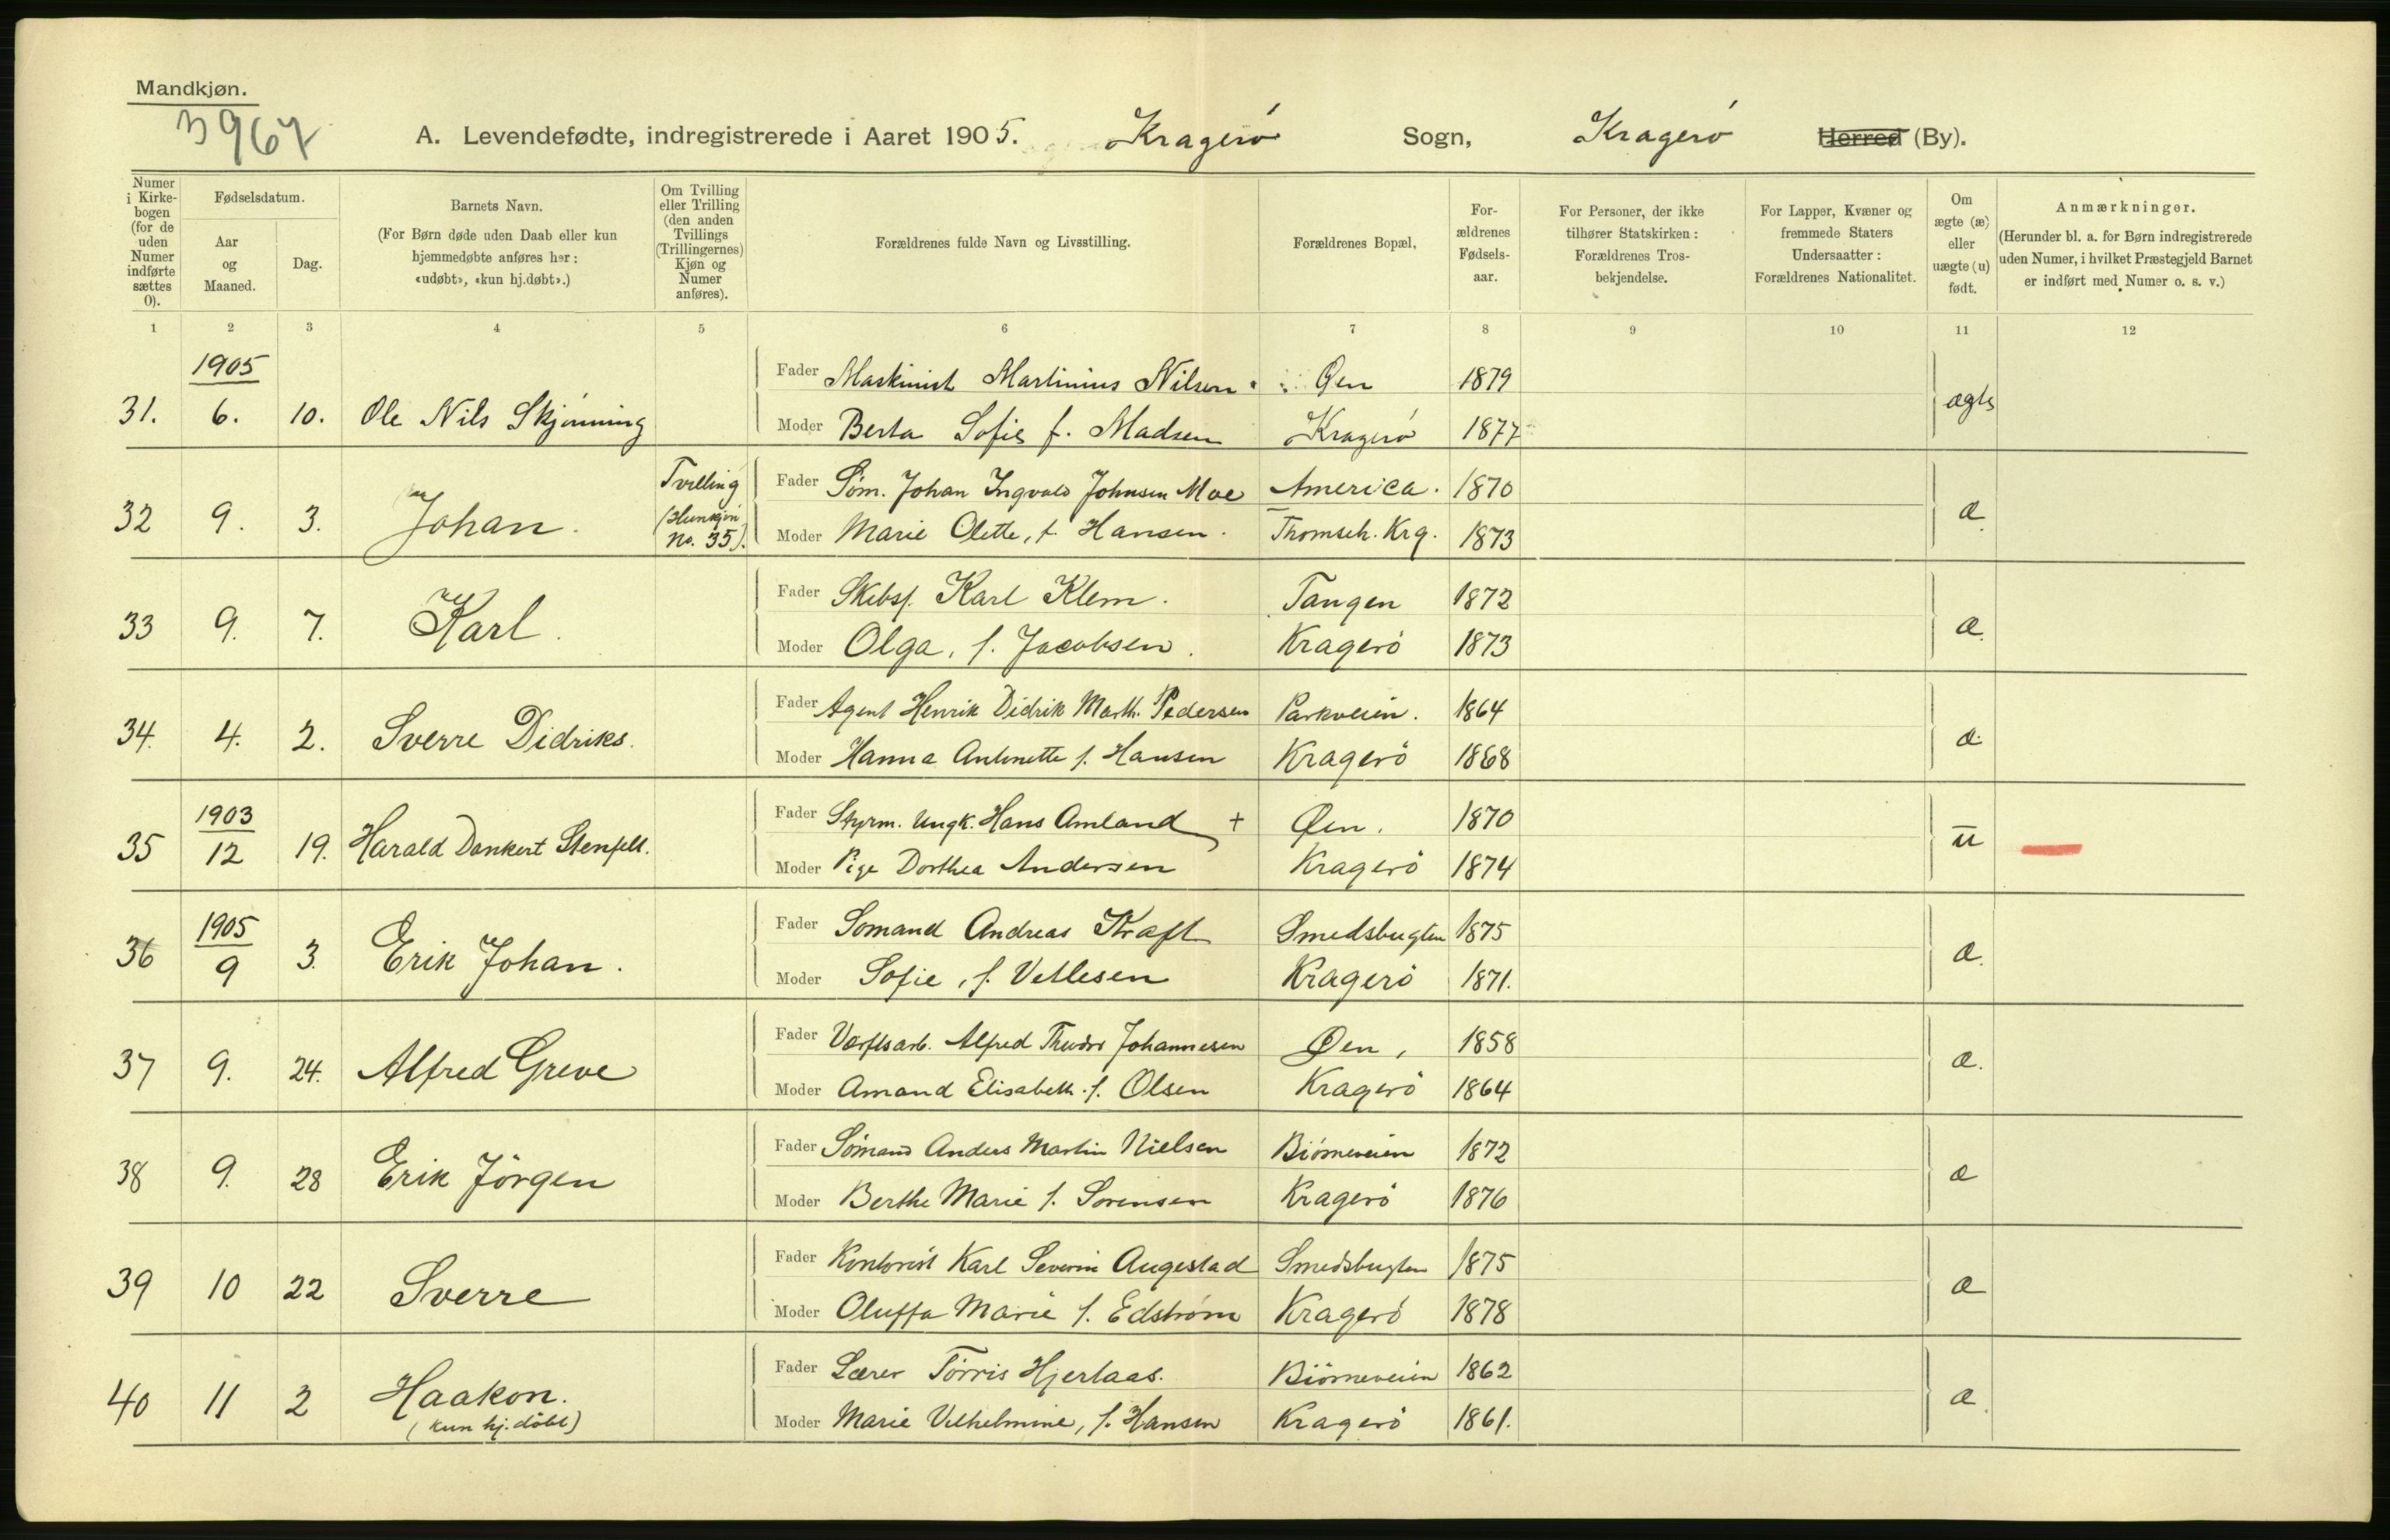 Mandkjøn.
3967
A. Levendefødte, indregistrerede i Aaret 1905. Kragerö Sogn, Kragerö Herred (By).
Numer i Kirkebogen (for de uden Numer indførte sættes 0).
Fødselsdatum.
Aar og Maaned.
Dag.
Barnets Navn.
(For Børn døde uden Daab eller kun hjemmedøbte anføres her: «udøbt», «kun hj.døbt».)
Om Tvilling eller Trilling (den anden Tvillings (Trillingernes) Kjøn og Numer anføres).
Forældrenes fulde Navn og Livsstilling.
Forældrenes Bopæl,
Forældrenes Fødselsaar.
For Personer, der ikke tilhører Statskirken: Forældrenes Trosbekjendelse.
For Lapper, Kvæner og fremmede Staters Undersaatter: Forældrenes Nationalitet.
Om ægte (æ) eller uægte (u) født.
Anmærkninger.
(Herunder bl. a. for Børn indregistrerede uden Numer, i hvilket Præstegjeld Barnet er indført med Numer o. s. v.)
1 2 3 4 5 6 7 8 9 10 11 12
1905
Fader Maskinist Martinius Nilsen Øen 1879
31. 6. 10. Ole Nils Skjönning ægte
Moder Berta Sofie f. Madsen Kragerö 1877
Tvilling (Hunkjön No. 35).
Fader Söm. Johan Ingvald Johnsen Moe America. 1870
32 9. 3. Johan. æ.
Moder Marie Olette, f. Hansen. Thomseh. Krg. 1873
Fader Skibsf. Karl Klem. Tangen 1872
33 9. 7. Karl. æ.
Moder Olga, f. Jacobsen. Kragerö 1873
Fader Agent Henrik Didrik Marth. Pedersen Parkveien. 1864
34. 4. 2. Sverre Didriks. æ.
Moder Hanna Antonette f. Hansen Kragerö 1868
1903
Fader Styrm. Ungk. Hans Amland + Øen. 1870
35 12 19. Harald Dankert Stenfelt. u
Moder Pige Dorthea Andersen Kragerö 1874
1905
Fader Sömand Andreas Kraft Smedsbugten 1875
36 9 3. Erik Johan. æ.
Moder Sofie, f. Vetlesen Kragerö 1871.
Fader Værftsarb. Alfred Theodor Johannesen Øen, 1858
37 9. 24. Alfred Greve æ.
Moder Amand Elisabeth f. Olsen Kragerö 1864
Fader Sömand Anders Martin Nielsen Biörneveien 1872
38 9. 28 Erik Jörgen æ
Moder Berthe Marie f. Sörensen Kragerö 1876
Fader Kontorist Karl Severin Augestad Smedsbugten 1875
39 10 22 Sverre æ
Moder Oluffa Marie f. Edström Kragerö 1878
Fader Lærer Törris Hjertaas. Biörneveien 1862
40 11 2 Haakon. (kun hj. döbt) æ.
Moder Marie Vilhelmine, f. Hansen Kragerö 1861.